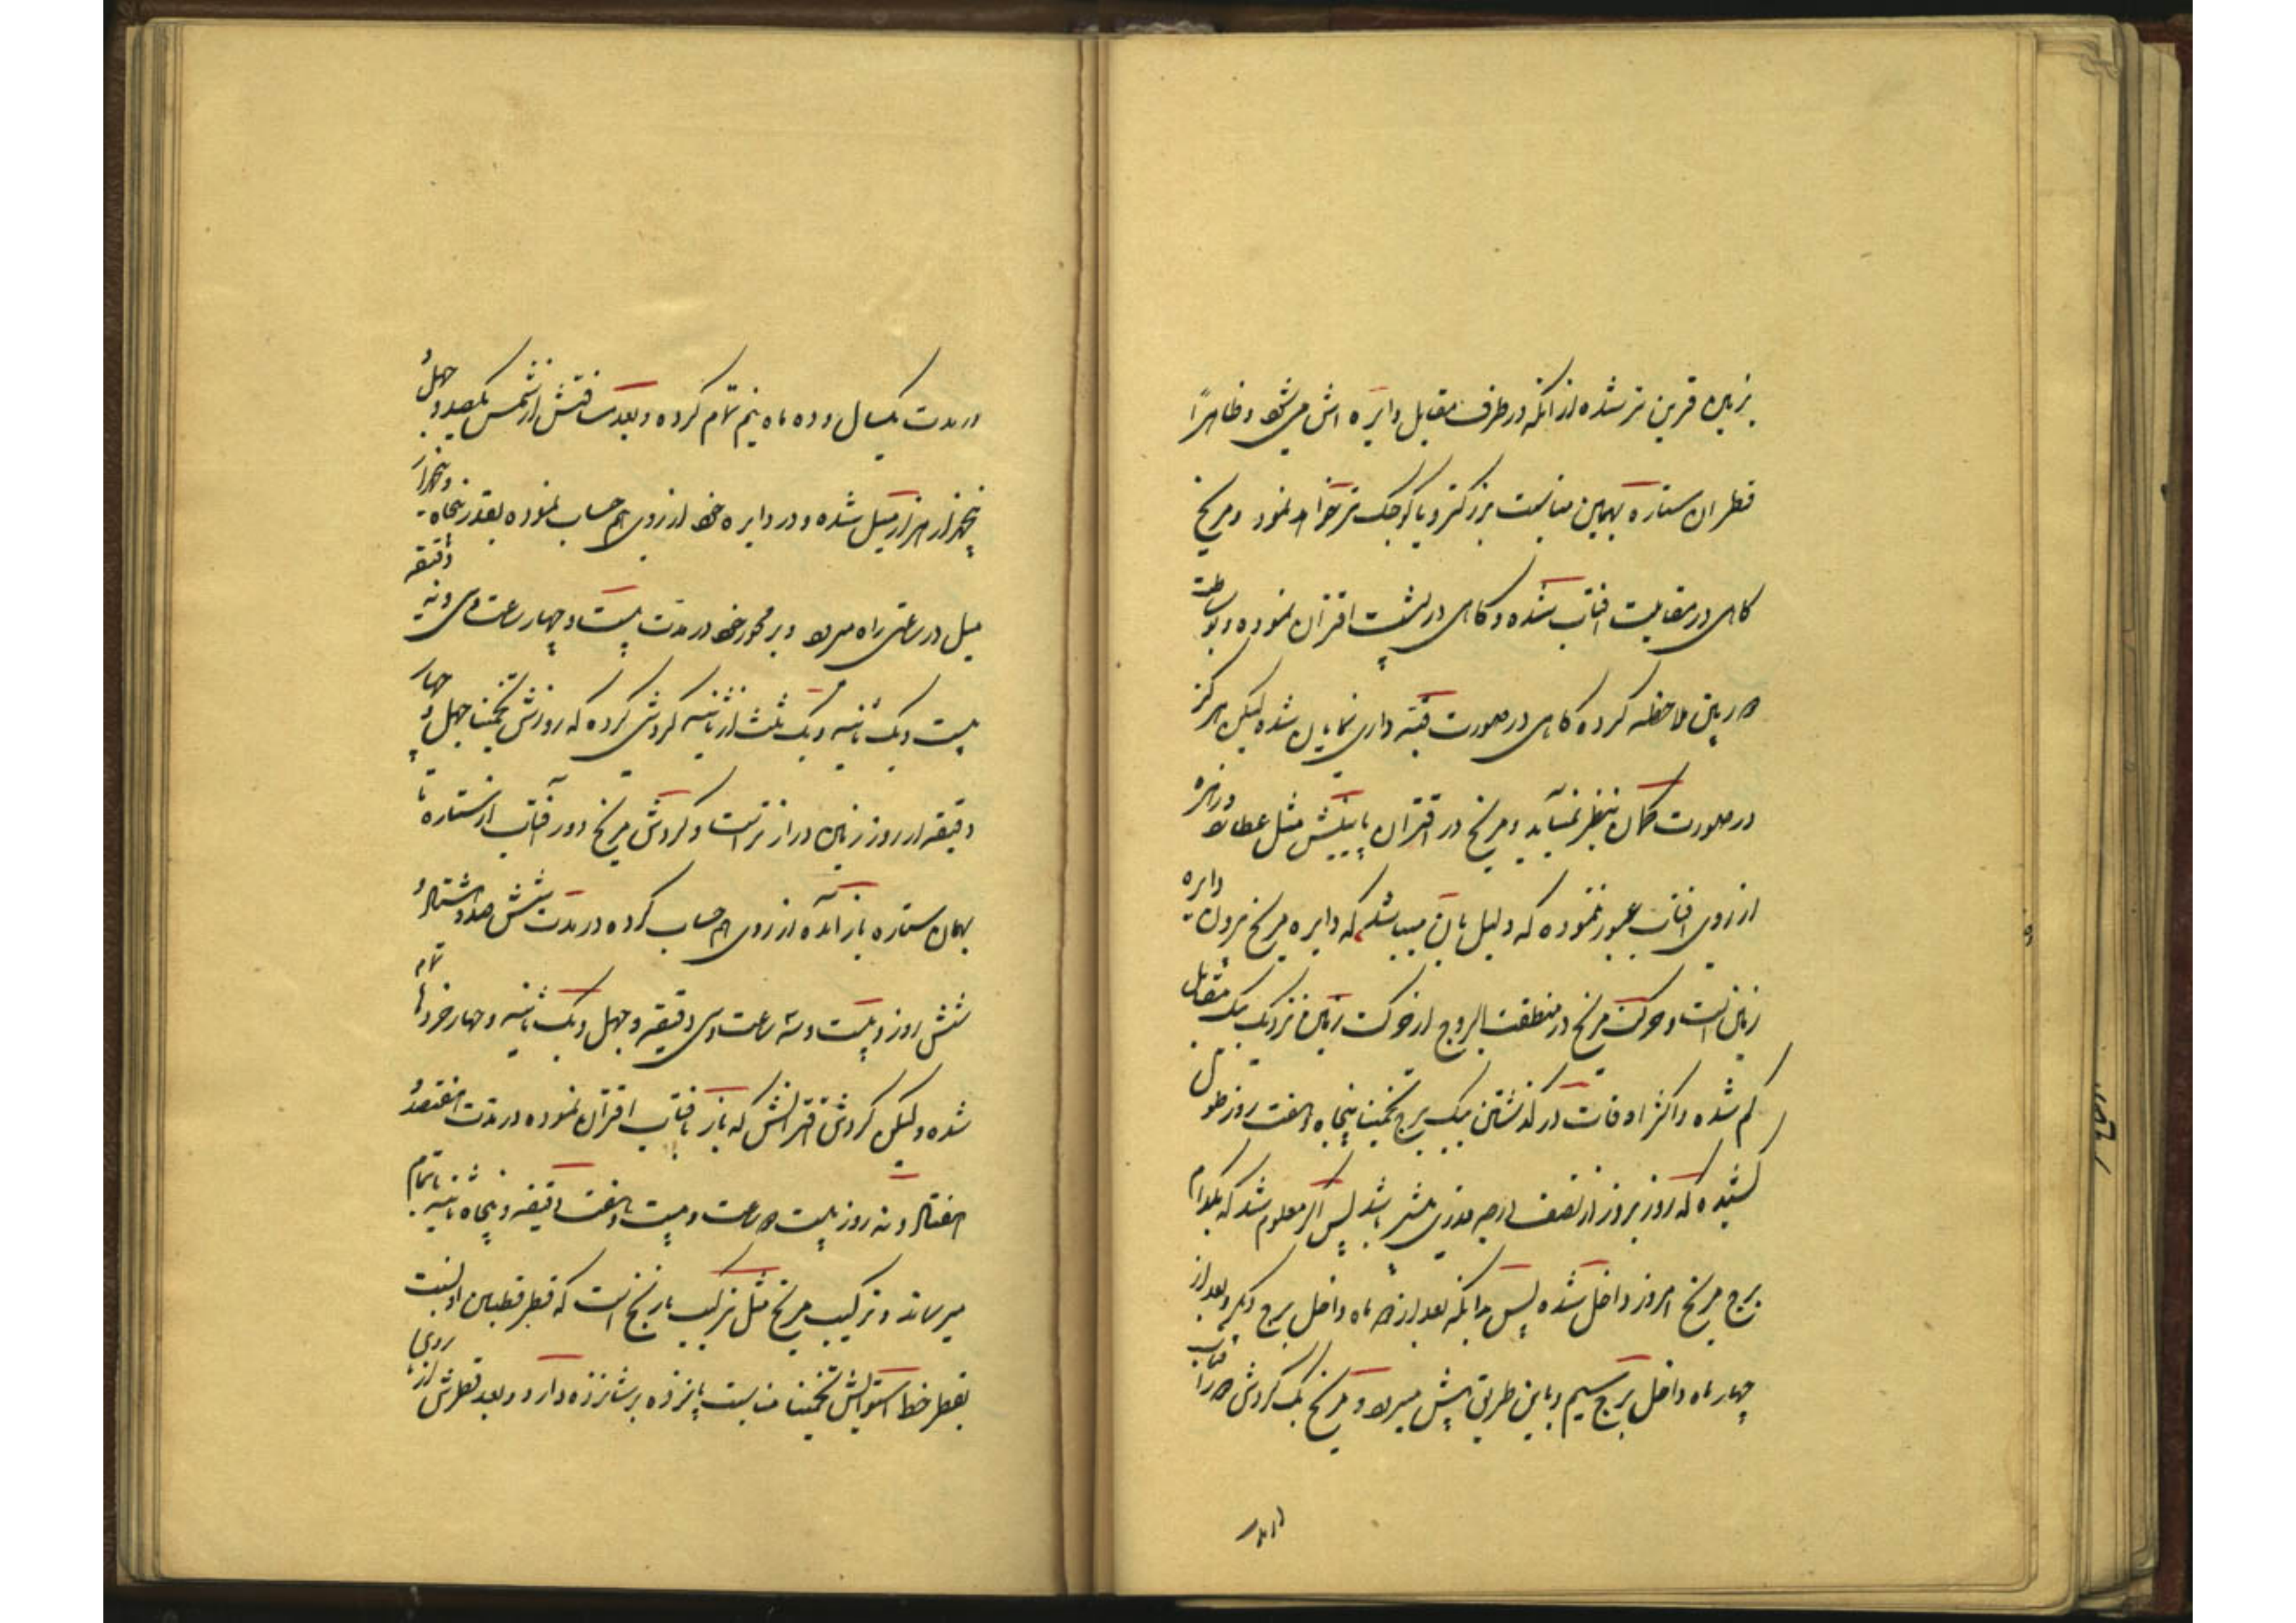 بزمین قرین تر شده از آنکه در طرف مقابل دایره اش میشود و ظاهراً
قطر ان ستاره بهمین مناسبت بزرکتر و یا کوچک تر خواهد نمود و مریخ
کاهی در مقابلیت افتاب شده و کاهی در پشت اقتران نموده و بوساطت
دوربین ملاحظه کرده کاهی در صورت قبه داری نمایان شده لیکن هرکز
در صورت کمان بنظر نمیآید و مریخ در اقتران پایینش مثل عطارد و زهره
از روی افتاب عبور ننموده که دلیل بان میباشد که دایره مریخ بیرون دایره
زمین است و حرکت مریخ در منطقت البروج از حرکت زمین نزدیک بیک مقابل
کم شده و اکثر اوقات در کذشتن یک برج تخمینا پنجاه و هفت روز طول
کشیده که روز بروز از نصف درجه قدری بیشتر باشد پس اکر معلوم شد که بکدام
برج مریخ امروز داخل شده پس بدانکه بعد از دو ماه داخل برج دیکر و بعد از
چهار ماه داخل برج سیم و باین طریق پیش میرود و مریخ یک کردش دور افتاب
در مدت
در مدت یکسال و ده ماه نیم تمام کرده و بعد مسافتش از شمس یکصد و چهل و
پنجهزار هزار میل شده و در دایره خود از روی هم حساب نموده بقدر پنجاه و پنجهزار
میل در ساعتی راه میرود و بر محور خود در مدت بیست و چهار ساعت و سی و نه دقیقه
بیست و یک ثانیه و یک ثلث از ثانیه کردش کرده که روزش تخمینا چهل و چهار
دقیقه از روز زمین دراز تر است و کردش مریخ دور افتاب از ستاره تا
بهمان ستاره باز آمده از روی هم حساب کرده در مدت شش صد و هشتاد و
شش روز و بیست و سه ساعت و سی دقیقه و چهل و یک ثانیه و چهار خردها تمام
شده ولیکن کردش اقترانش که باز با افتاب اقتران نموده در مدت هفتصد و
هفتاد و نه روز بیست دو ساعت و بیست و هفت دقیقه و پنجاه ثانیه باتمام
میرساند و ترکیب مریخ مثل ترکیب نارنج است که قطر قطبین او نسبت
بقطر خط استوایش تخمینا مناسبت پانزده بر شانزده دارد و بعد قطرش از روی